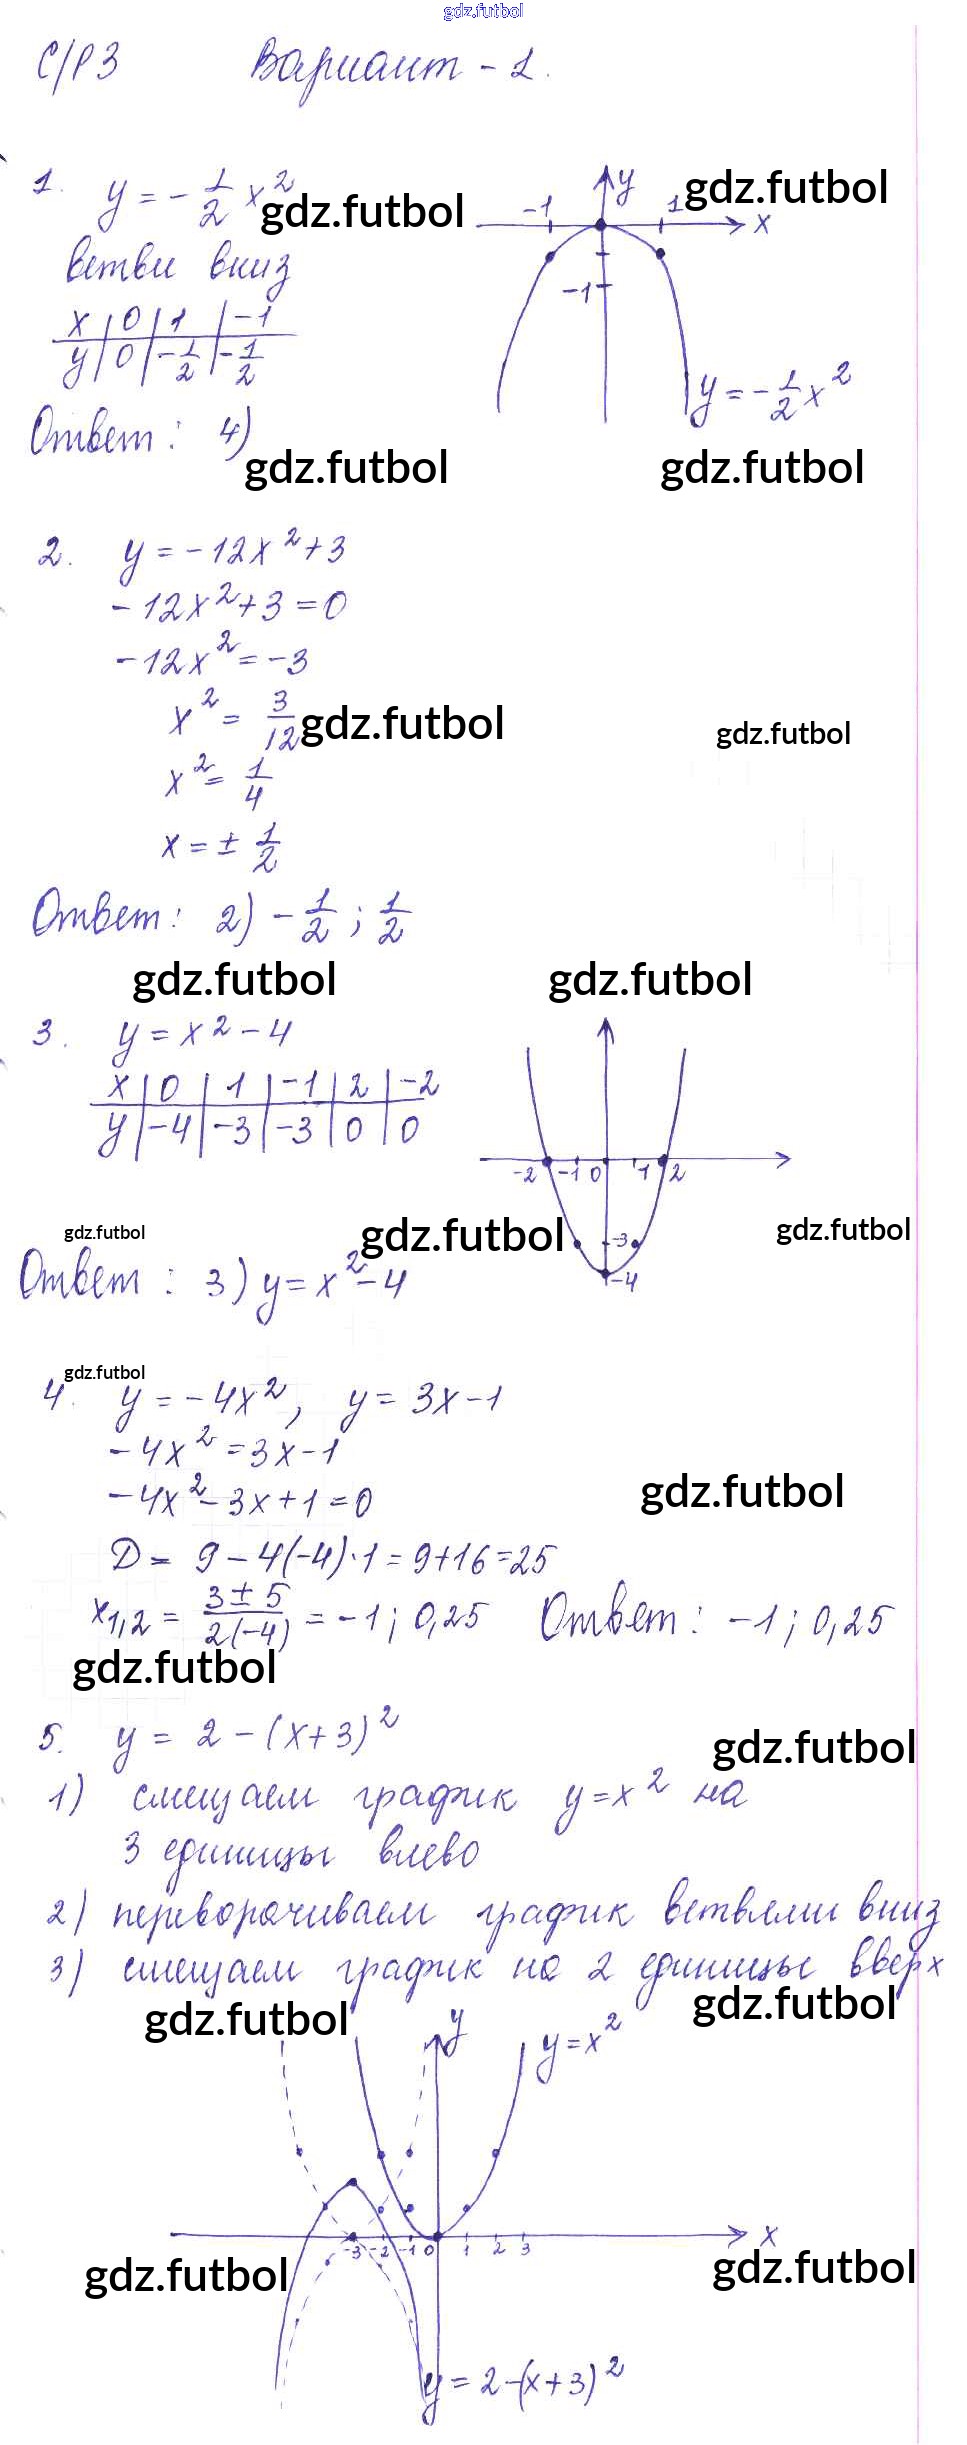 gdz.futbol
С/Р 3 Вариант - 1.
1. y = - 1/2 x² gdz.futbol
-1 y 1 gdz.futbol x
ветви вниз
-1
x | 0 | 1 | -1
y | 0 | -1/2 | -1/2
y = - 1/2 x²
Ответ: 4)
gdz.futbol gdz.futbol
2. y = -12x² + 3
-12x² + 3 = 0
-12x² = -3
x² = 3/12 gdz.futbol gdz.futbol
x² = 1/4
x = ± 1/2
Ответ: 2) - 1/2 ; 1/2
gdz.futbol gdz.futbol
3. y = x² - 4
x | 0 | 1 | -1 | 2 | -2
y | -4 | -3 | -3 | 0 | 0
-2 -1 0 1 2
-3
-4
gdz.futbol gdz.futbol gdz.futbol
Ответ: 3) y = x² - 4
gdz.futbol
4. y = -4x², y = 3x - 1
-4x² = 3x - 1
-4x² - 3x + 1 = 0
gdz.futbol
D = 9 - 4(-4)·1 = 9 + 16 = 25
x1,2 = 3 ± 5/2(-4) = -1; 0,25 Ответ: -1; 0,25
gdz.futbol
5. y = 2 - (x + 3)²
gdz.futbol
1) смещаем график y = x² на
3 единицы влево
2) переворачиваем график ветвями вниз
3) смещаем график на 2 единицы вверх
gdz.futbol gdz.futbol
y y = x²
-3 -2 -1 0 1 2 3 x
gdz.futbol gdz.futbol
y = 2 - (x + 3)²